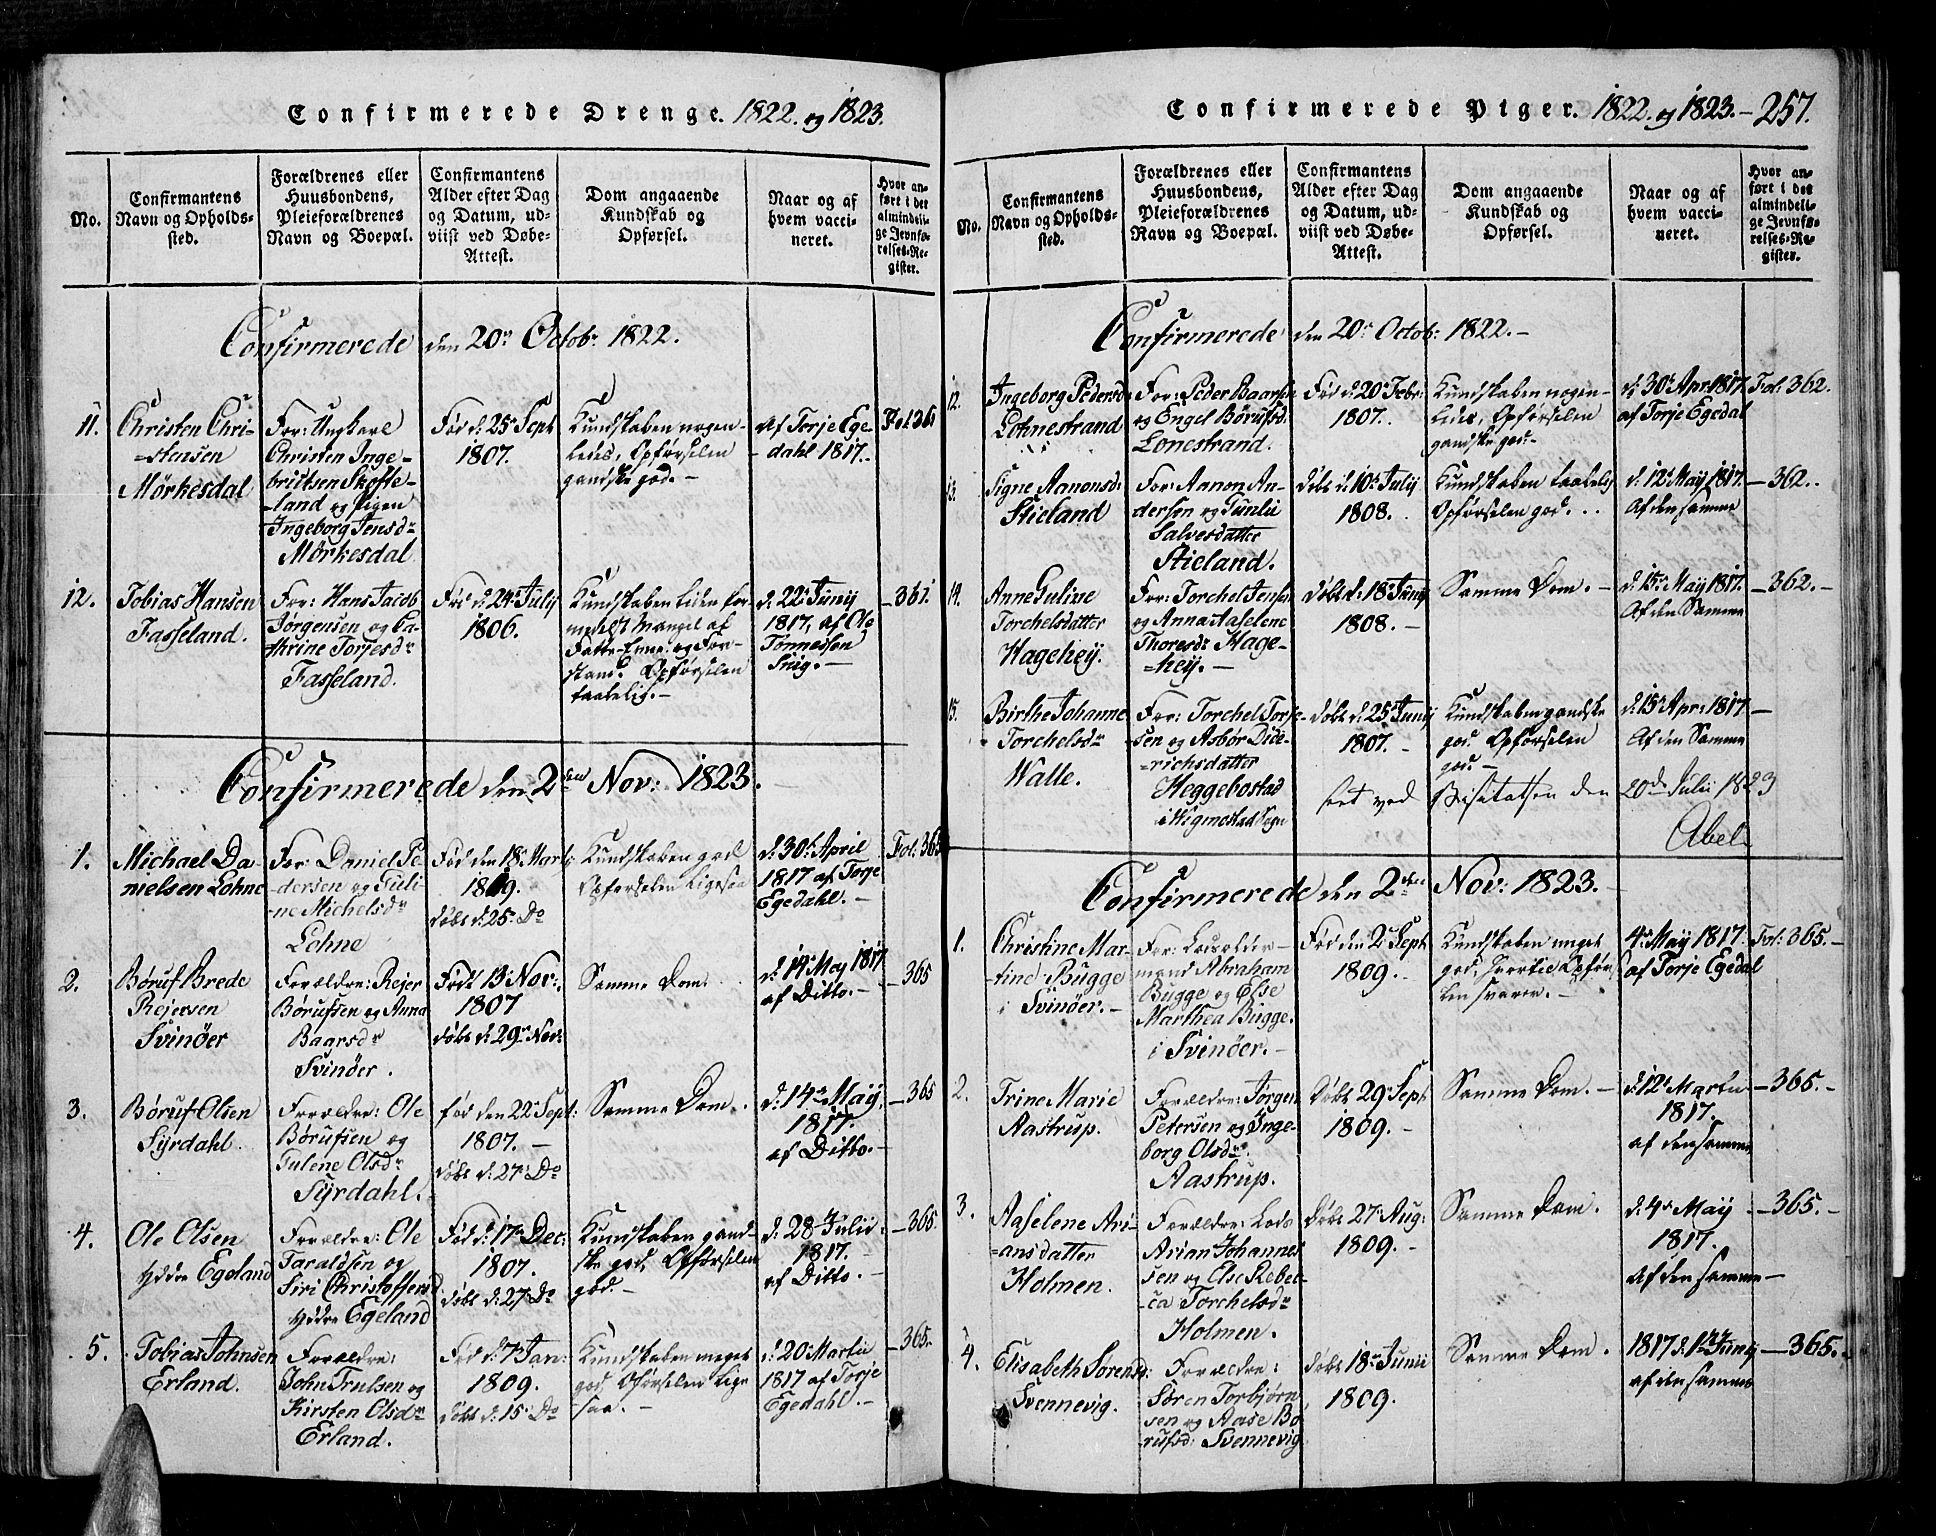 Confirmerede Drenge. 1822. og 1823.
No.
Confirmantens Navn og Opholdssted.
Forældrenes eller Huusbondens, Pleieforældrenes Navn og Boepæl.
Confirmantens Alder efter Dag og Datum, udviist ved Døbe-Attest.
Dom angaaende Kundskab og Opførsel.
Naar og af hvem vaccineret.
Hvor anført i det almindelige Jevnførelses-Register.
Confirmerede den 20de Octobr 1822.
11.
Christen Chri-
stensen
Mørkesdal
For: Ungkarl
Christen Inge-
brictsen Skofte-
land og Pigen
Ingeborg Jensdr
Mørkesdal
Fød d: 25de Sept
1807.
Kundskaben nogen-
ledes, Opførselen
gandske god. -
Af Torje Ege-
dahl 1817. -
Fol. 361
12.
Tobias Hansen
Fasseland.
For: Hans Jacob
Jørgensen og Ca-
thrine Torjesdr
Fasseland.
Fød d: 24de Julij
1806.
Kundskaben liden for-
medelst Mangel af
Fatte-Evne og For-
stand. Opførselen
taalelig. -
d: 22de Junij
1817, af Ole
Tønnessen
Snig. -
- 361.
Confirmerede den 2den Nov: 1823. -
1.
Michael Da-
nielsen Lohne
For: Daniel Pe-
dersen og Juli-
ne Michelsdr
Lohne
Fød den 18de Marts
1809.
døbt d: 25de Do
Kundskaben god
Opførselen Ligesaa
d: 30de April
1817 af Torje
Egedahl. -
Fol: 365
2.
Børuf Brede
Rejersen
Svinøer
Forældre: Rejer
Børufsen og Anna
Baarsdr
Svinøer.
Fød d. 13 Nov:
1807
døbt d: 29de Nov:
Samme Dom.
d: 14de May 1817
af Ditto. -
- 365
3.
Børuf Olsen
Syrdahl.
Forældre: Ole
Børufsen og
Tulene Olsdr
Syrdahl.
fød den 22de Sept:
1807. -
døbt d: 27de Do
Samme Dom.
d: 14de May
1817.
af Ditto. -
- 365
4.
Ole Olsen
Yddre Egeland
Forældre: Ole
Taraldsen og
Siri Christoffersd
Yddre Egeland
Fød d: 17de Dec:
1807.
døbt d: 27de Do
Kundskaben gand-
ske god, Opførselen
god. -
d: 28 Julii
1817. -
af Ditto. -
- 365.
5.
Tobias Johnsen
Erland.
Forældre:
John Trulsen og
Kirsten Olsdr
Erland.
Fød d: 7de Jan:
1809.
døbt d: 15de Do
Kundskaben meget
god, Opførselen Lige
saa. -
d: 20 Martii
1817 af Torje
Egedahl. -
- 365.
Confirmerede Piger. 1822. og 1823. - 257.
No.
Confirmantens Navn og Opholdssted.
Forældrenes eller Huusbondens, Pleieforældrenes Navn og Boepæl.
Confirmantens Alder efter Dag og Datum, udviist ved Døbe-Attest.
Dom angaaende Kundskab og Opførsel.
Naar og af hvem vaccineret.
Hvor anført i det almindelige Jevnførelses-Register.
Confirmerede den 20de Octob: 1822. -
12.
Ingeborg Pedersd:
Lohnestrand
For: Peder Baarsen
og Engel Børufsd:
Lonestrand.
Fød d: 20de Febr:
1807.
Kundskaben nogen-
ledes, Opførselen
gandske god. -
d: 30de Apr: 1817
af Torje Egedal
Fol: 362.
13.
Signe Aanonsd:
Stieland
For: Aanon An-
dersen og Tunlii
Salvesdatter
Stieland.
Døbt d: 10de Julij
1808.
Kundskaben taalelig
Opførselen god. ..
d: 12te May 1817.
Af den samme
- 362..
14.
Anne Guline
Torchelsdatter
Hagehej.
For: Torchel Jensen
og Anna Aaselene
Thoresdr Hage-
hej. -
Døbt d: 18de Junij
1808. -
Samme Dom. -
d: 15de May 1817.
Af den Samme
- 362. -
15.
Birthe Johanne
Torchelsdr
Walle.
For: Torchel Torje-
sen og Asbør Dide-
richsdatter
Heggebostad
i Wigmostad Sogn
døbt d: 25de Junij
1807. -
Kundskaben gandske
god. Opførselen
god. -
d: 15de Apr: 1817. -
Af den Samme
seet ved Visitatsen den 20de Julii 1823
Abel
Confirmerede den 2den Nov: 1823. -
1.
Christine Mar-
tine Bugge
i Svinøer. -
For: Lodsolder-
mand Abraham
Bugge og Else
Marthea Bugge.
i Svinøer. -
Fød den 2de Sept.
1809. -
Kundskaben meget
god,
4de May 1817.
af Torje Egedal
Fol: 365. -
2.
Trine Marie
Aastrup.
Forældre: Jørgen
Petersen og Inge-
borg Olsdr
Aastrup.
Døbt 29de Sept
1809. -
Samme Dom. -
d: 12te Martii
1817.
af den samme
- 365. -
3.
Aaselene Ari-
ansdatter
Holmen.
Forældre: Lods
Arian Johannes
sen og Else Rebec-
ca Torchelsdr
Holmen.
Døbt 27de Aug:
1809. -
Samme Dom.
d: 4de May
1817.
Af den samme -
- 365. -
4.
Elisabeth Sørensd:
Svennevig.
Forældre:
Søren Torbjørn
sen og Aase Bø
rufsd: Svennevig
døbt 18de Junii
1809.
Samme Dom.
1817 d. 1ste Junij
af den samme
- 365. -